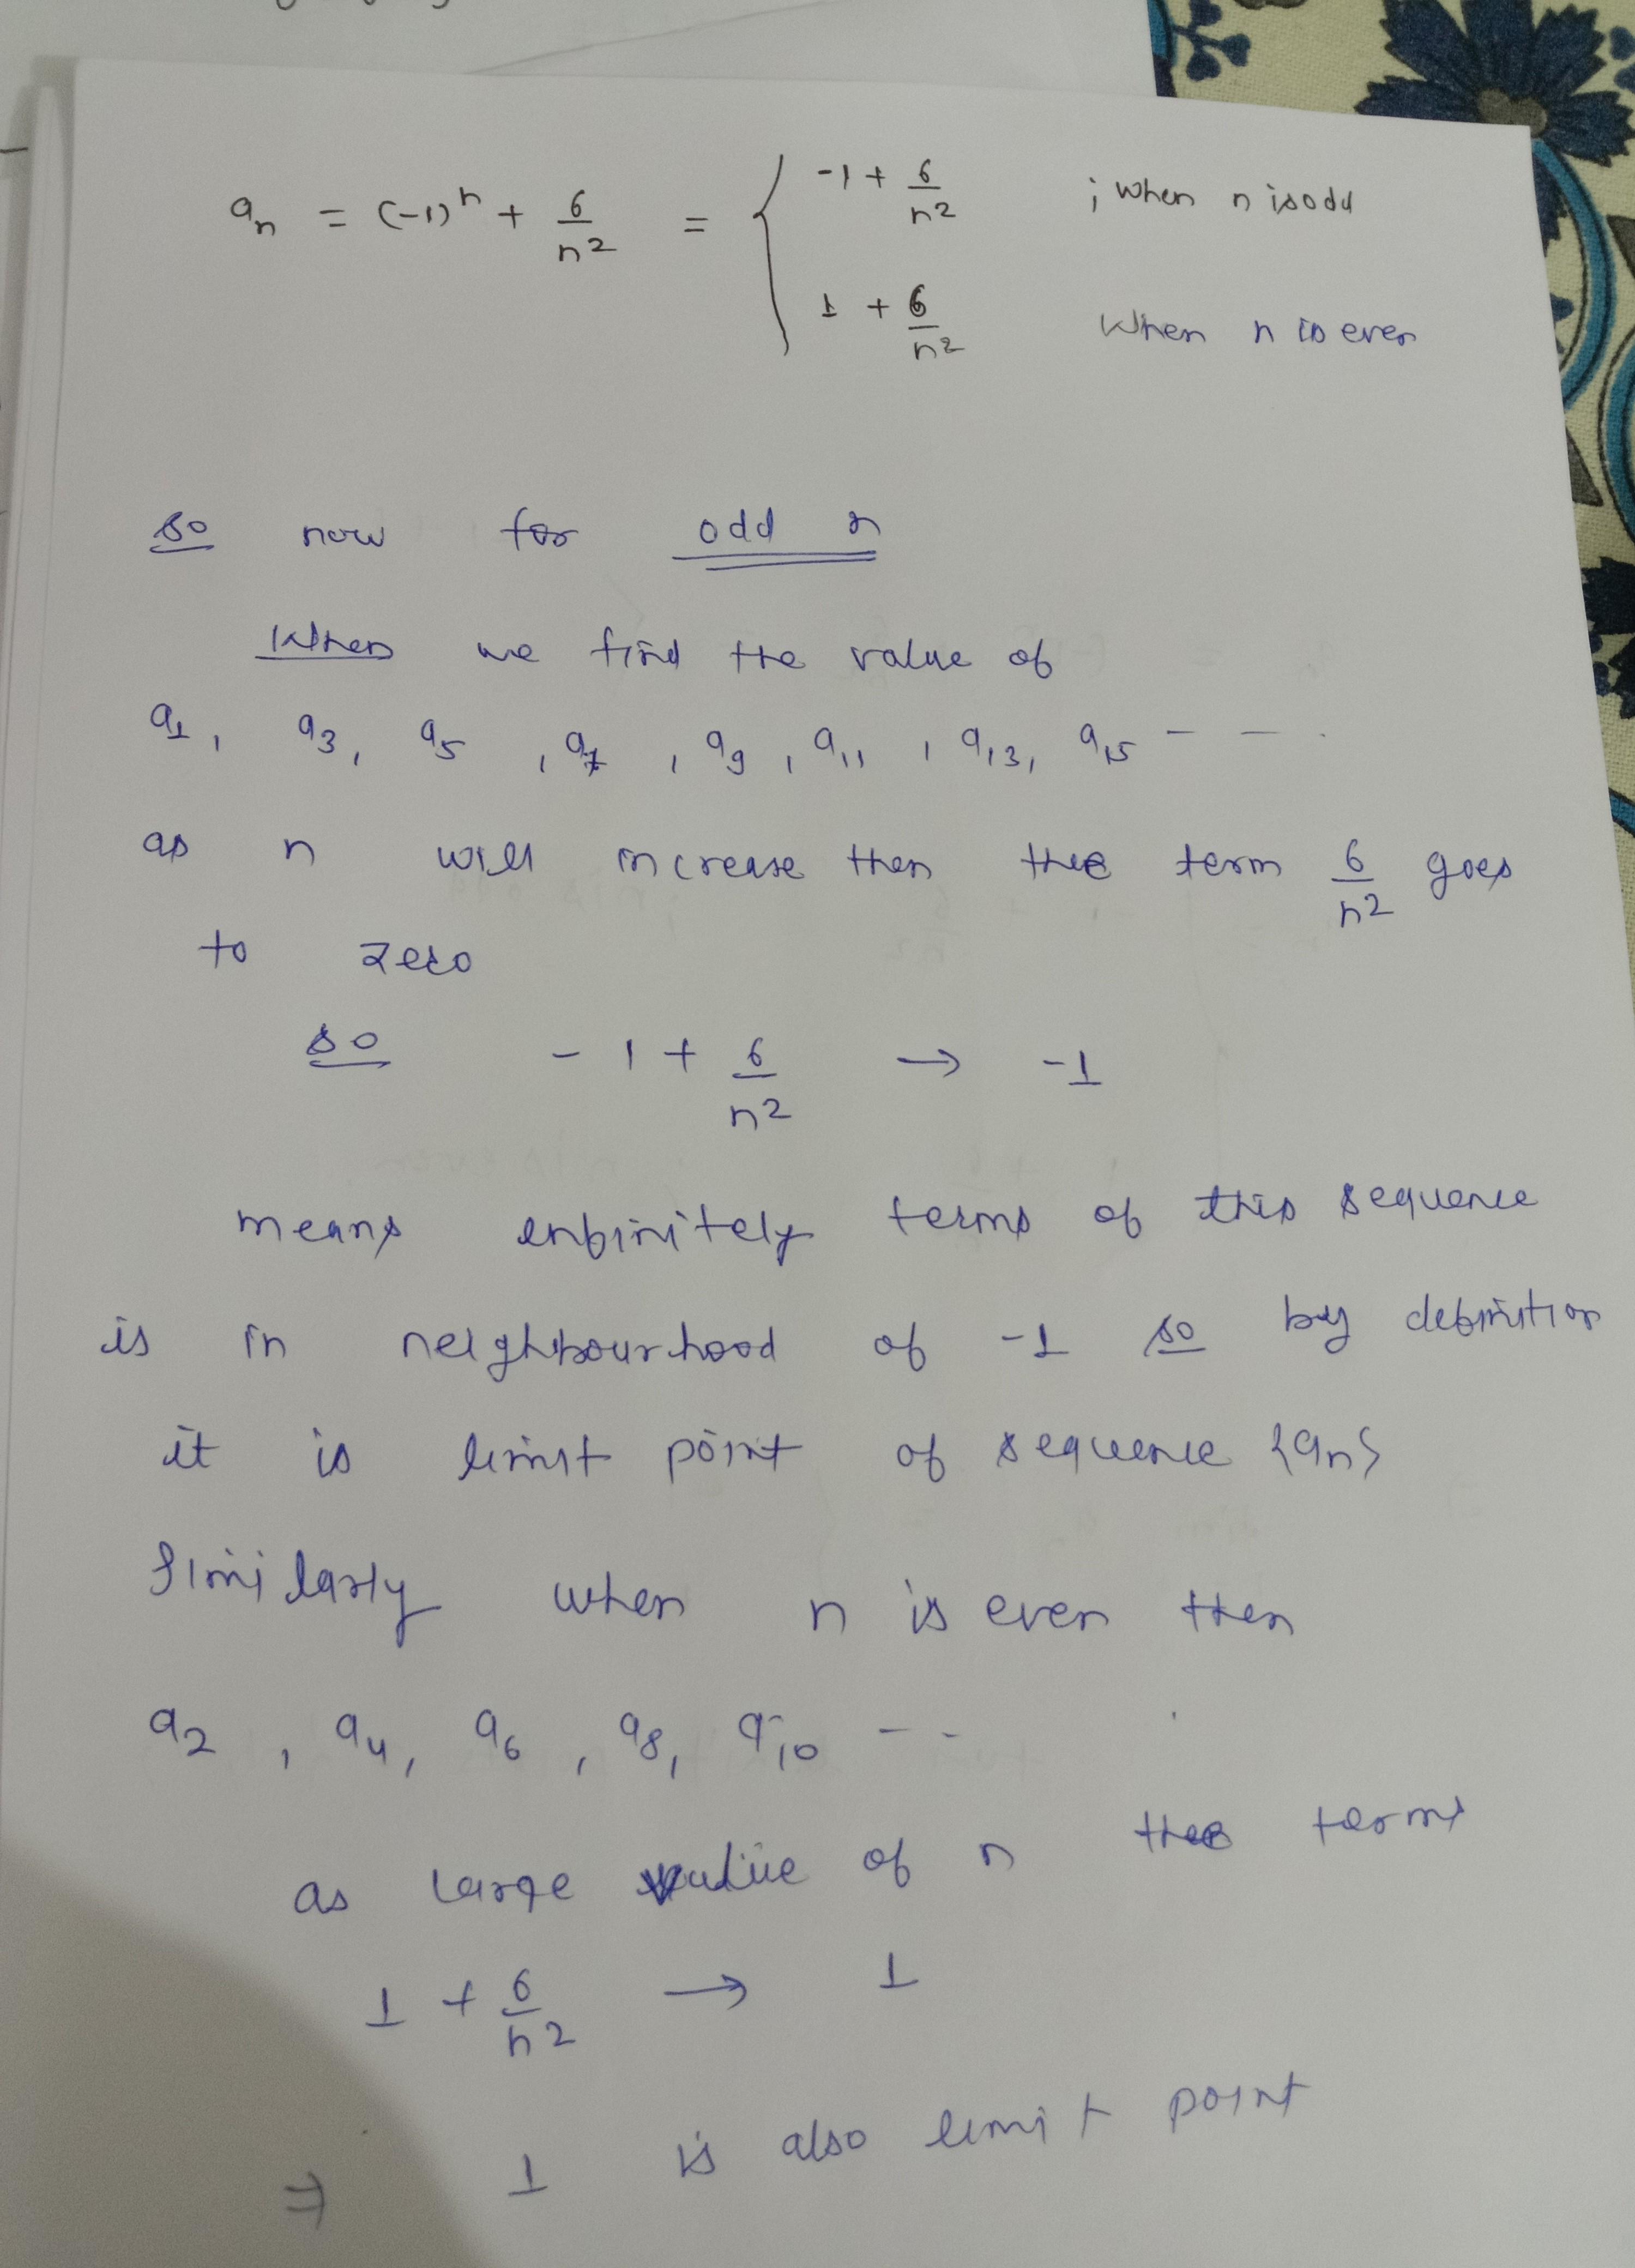 aₙ = (-1)ⁿ + 6/n² = { -1 + 6/n² ; when n is odd
1 + 6/n² When n is even
so now for odd n
When we find the value of
a₁, a₃, a₅, a₇, a₉, a₁₁, a₁₃, a₁₅ - - .
as n will increase then the term 6/n² goes
to zero
so -1 + 6/n² → -1
means enfinitely terms of this sequence
is in neighbourhood of -1 so by definition
it is limit point of sequence {aₙ}
Similarly when n is even then
a₂, a₄, a₆, a₈, a₁₀ - -
as large value of n the terms
1 + 6/n² → 1
⇒ 1 is also limit point